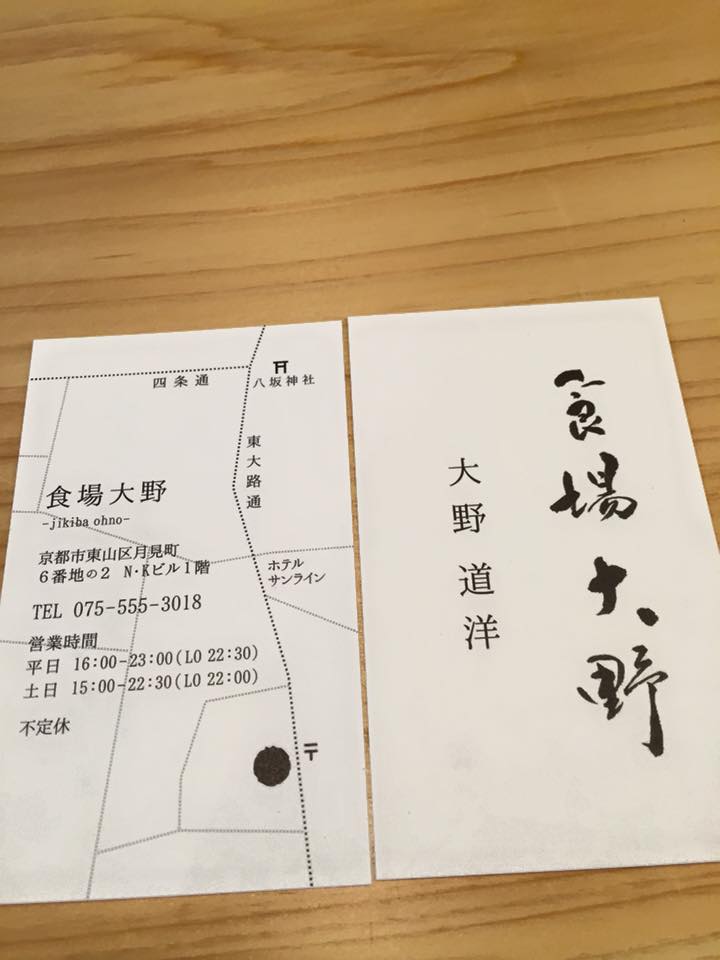 四条通
八坂神社
東大路通
食場大野
-jikiba ohno-
京都市東山区月見町
6番地の2 N・Kビル1階
ホテル
サンライン
TEL 075-555-3018
営業時間
平日 16:00-23:00(LO 22:30)
土日 15:00-22:30(LO 22:00)
不定休
〒
食場大野
大野 道洋